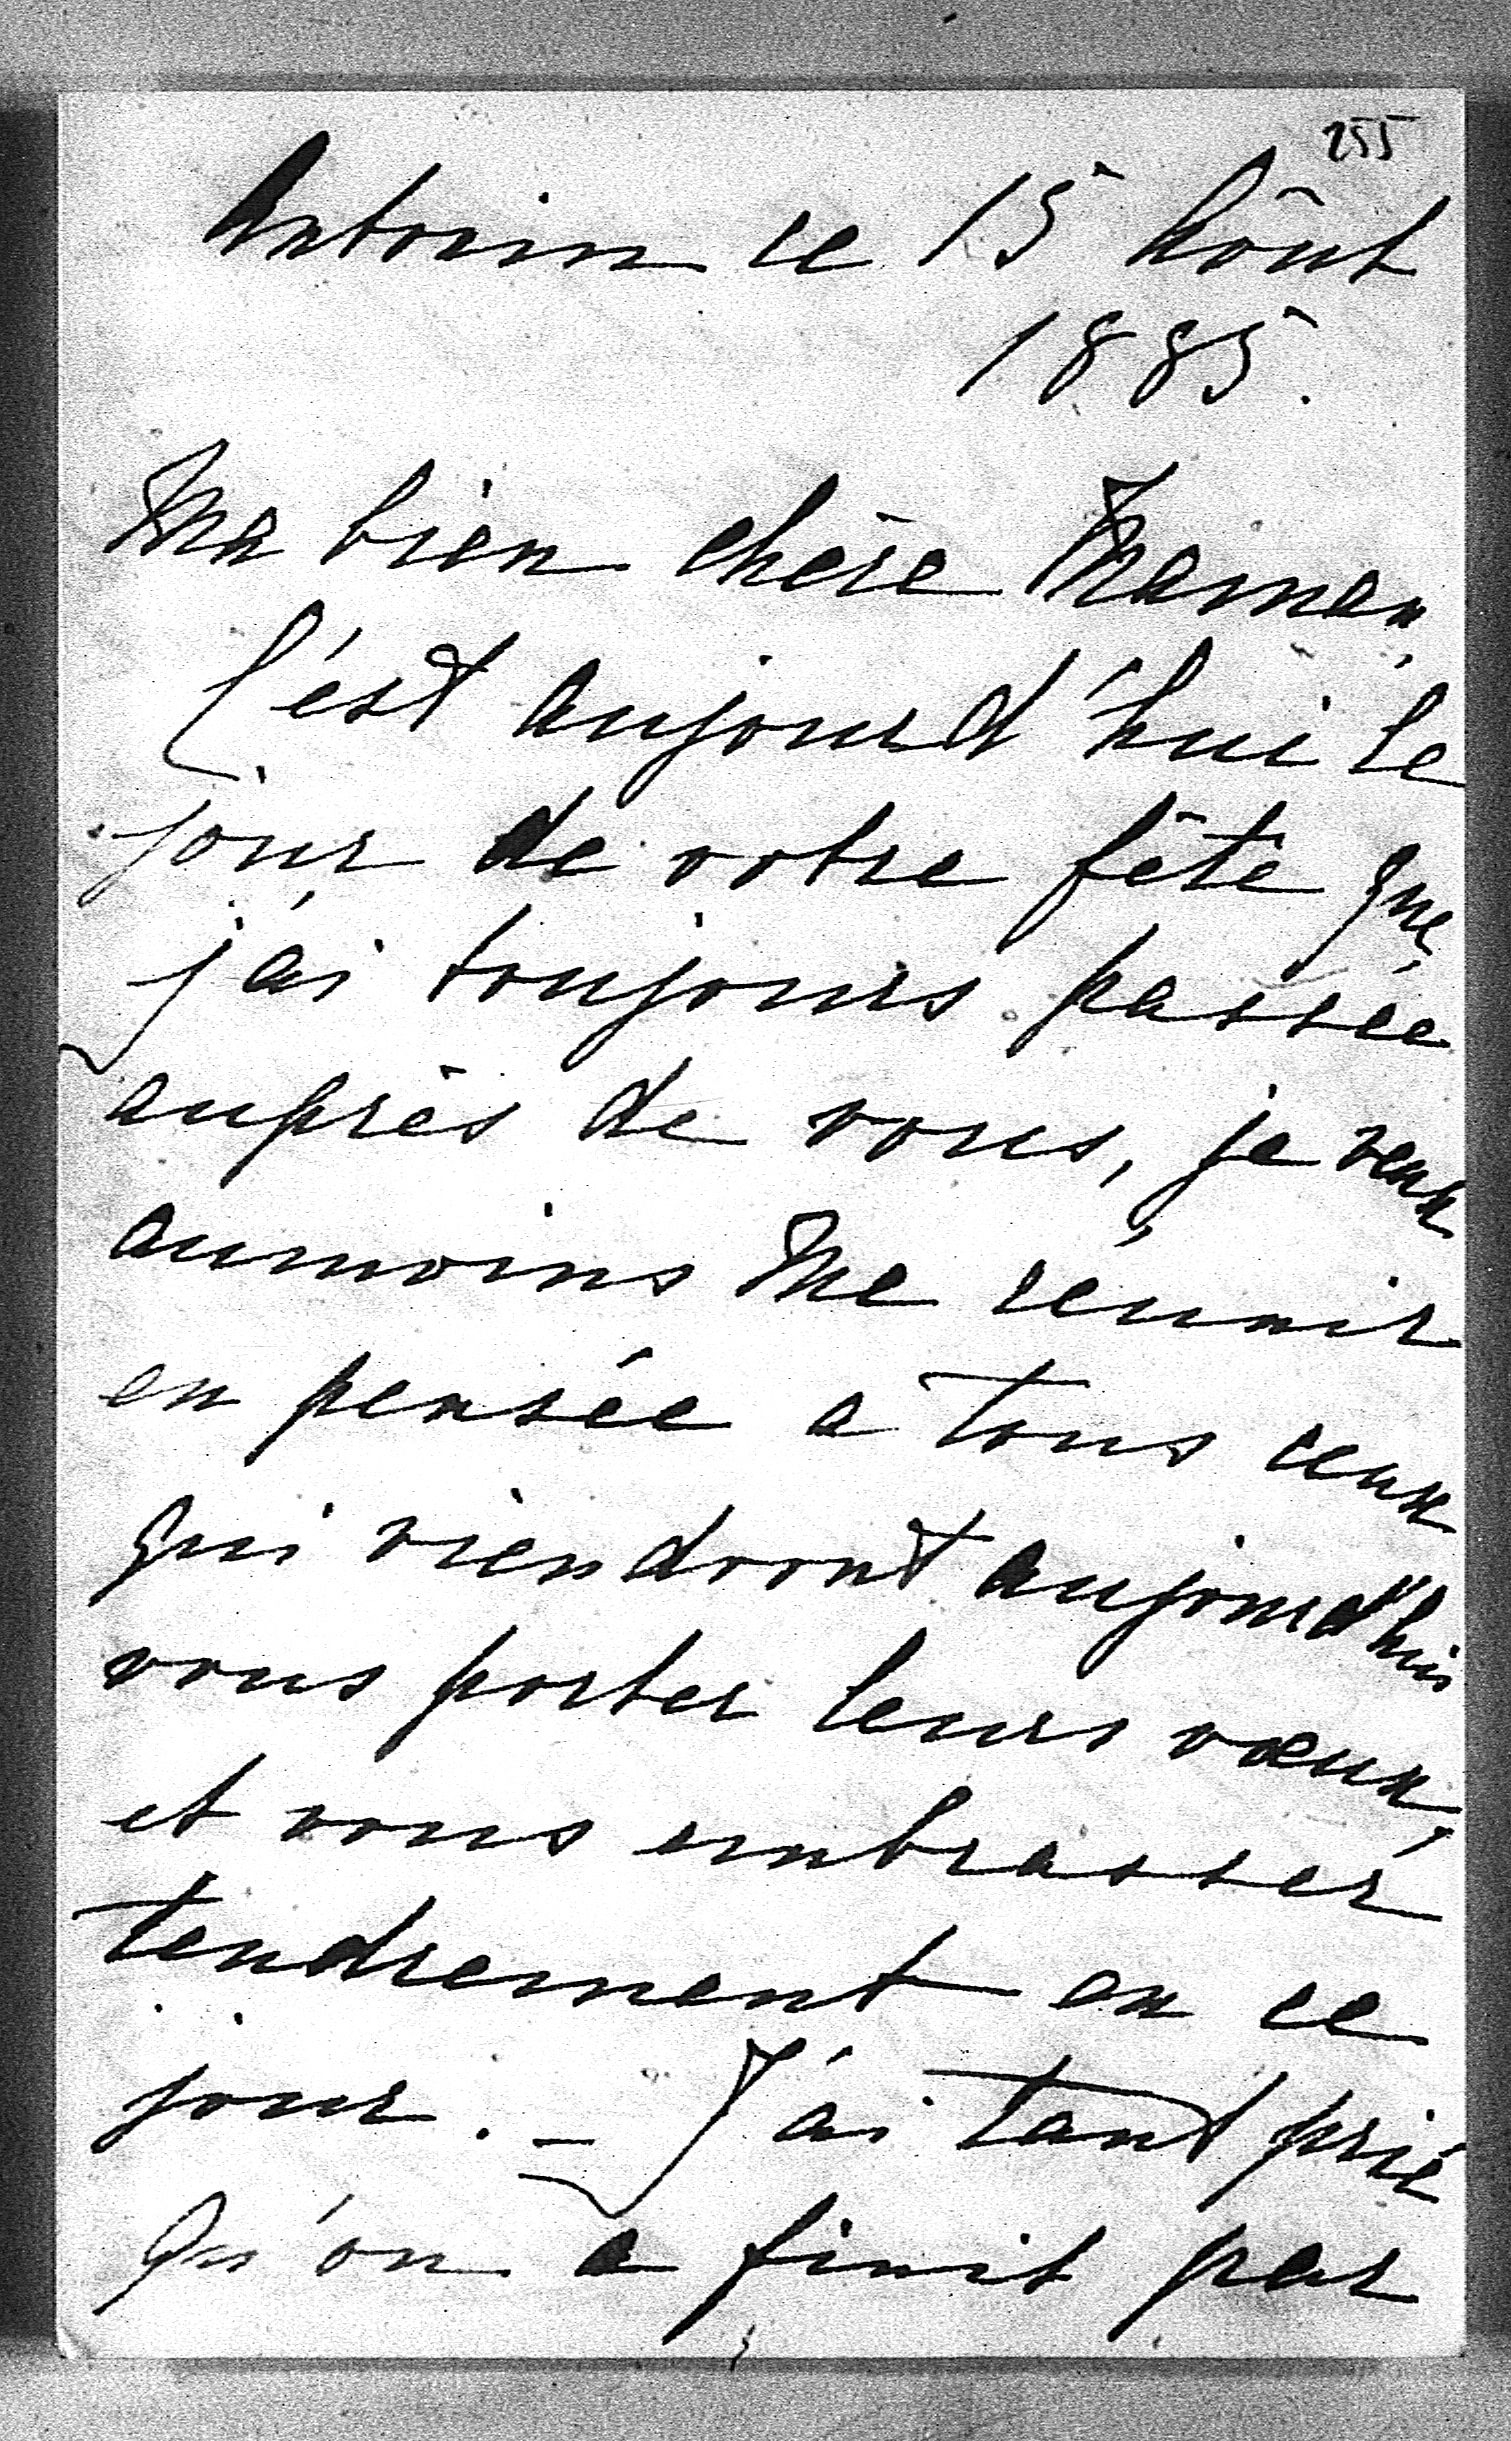 255
Antonin ce 15 Août
1885.
Ma bien chère Maman,
C'est aujourd'hui le
jour de votre fête que
j'ai toujours passée
auprès de vous, je veux
aumoins me réunir
en pensée a tous ceux
qui viendront aujourd'hui
vous porter leurs vœux,
et vous embrasser
tendrement en ce
jour. – J'ai tant prié
qu'on a finit par